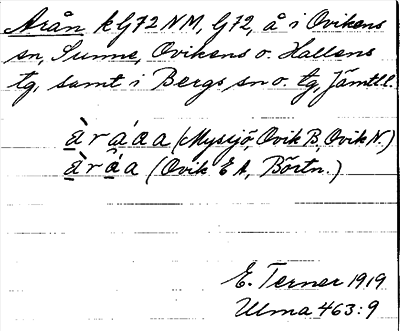 Arån k G72 NM, G72, å i Ovikens
sn, Sunne, Ovikens o. Hallens
tg, samt i Bergs sn o. tg, Jämtl l.
à r á a a (Myssjö, Ovik B, Ovik N.)
à r â a (Ovik E A, Börtn.)
E. Terner 1919
Ulma 463:9